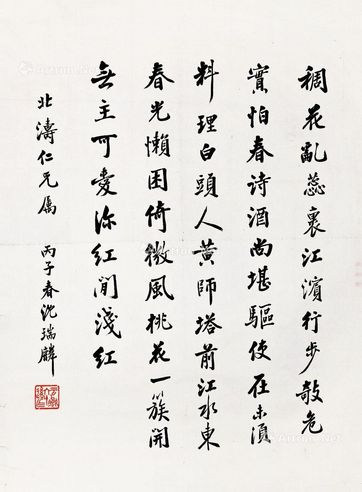 稠花亂蕊裹江濱行步敧危
實怕春詩酒尚堪驅使在未須
料理白頭人黃師塔前江水東
春光懶困倚微風桃花一簇開
無主可愛深紅間淺紅
北濤仁兄屬
丙子春沈瑞麟